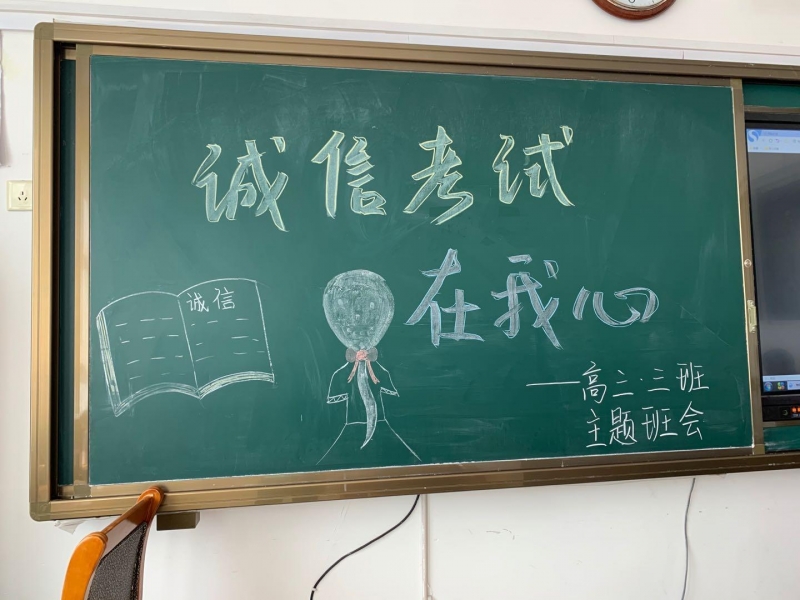 诚信考试
在我心
诚信
——高二·三班
主题班会